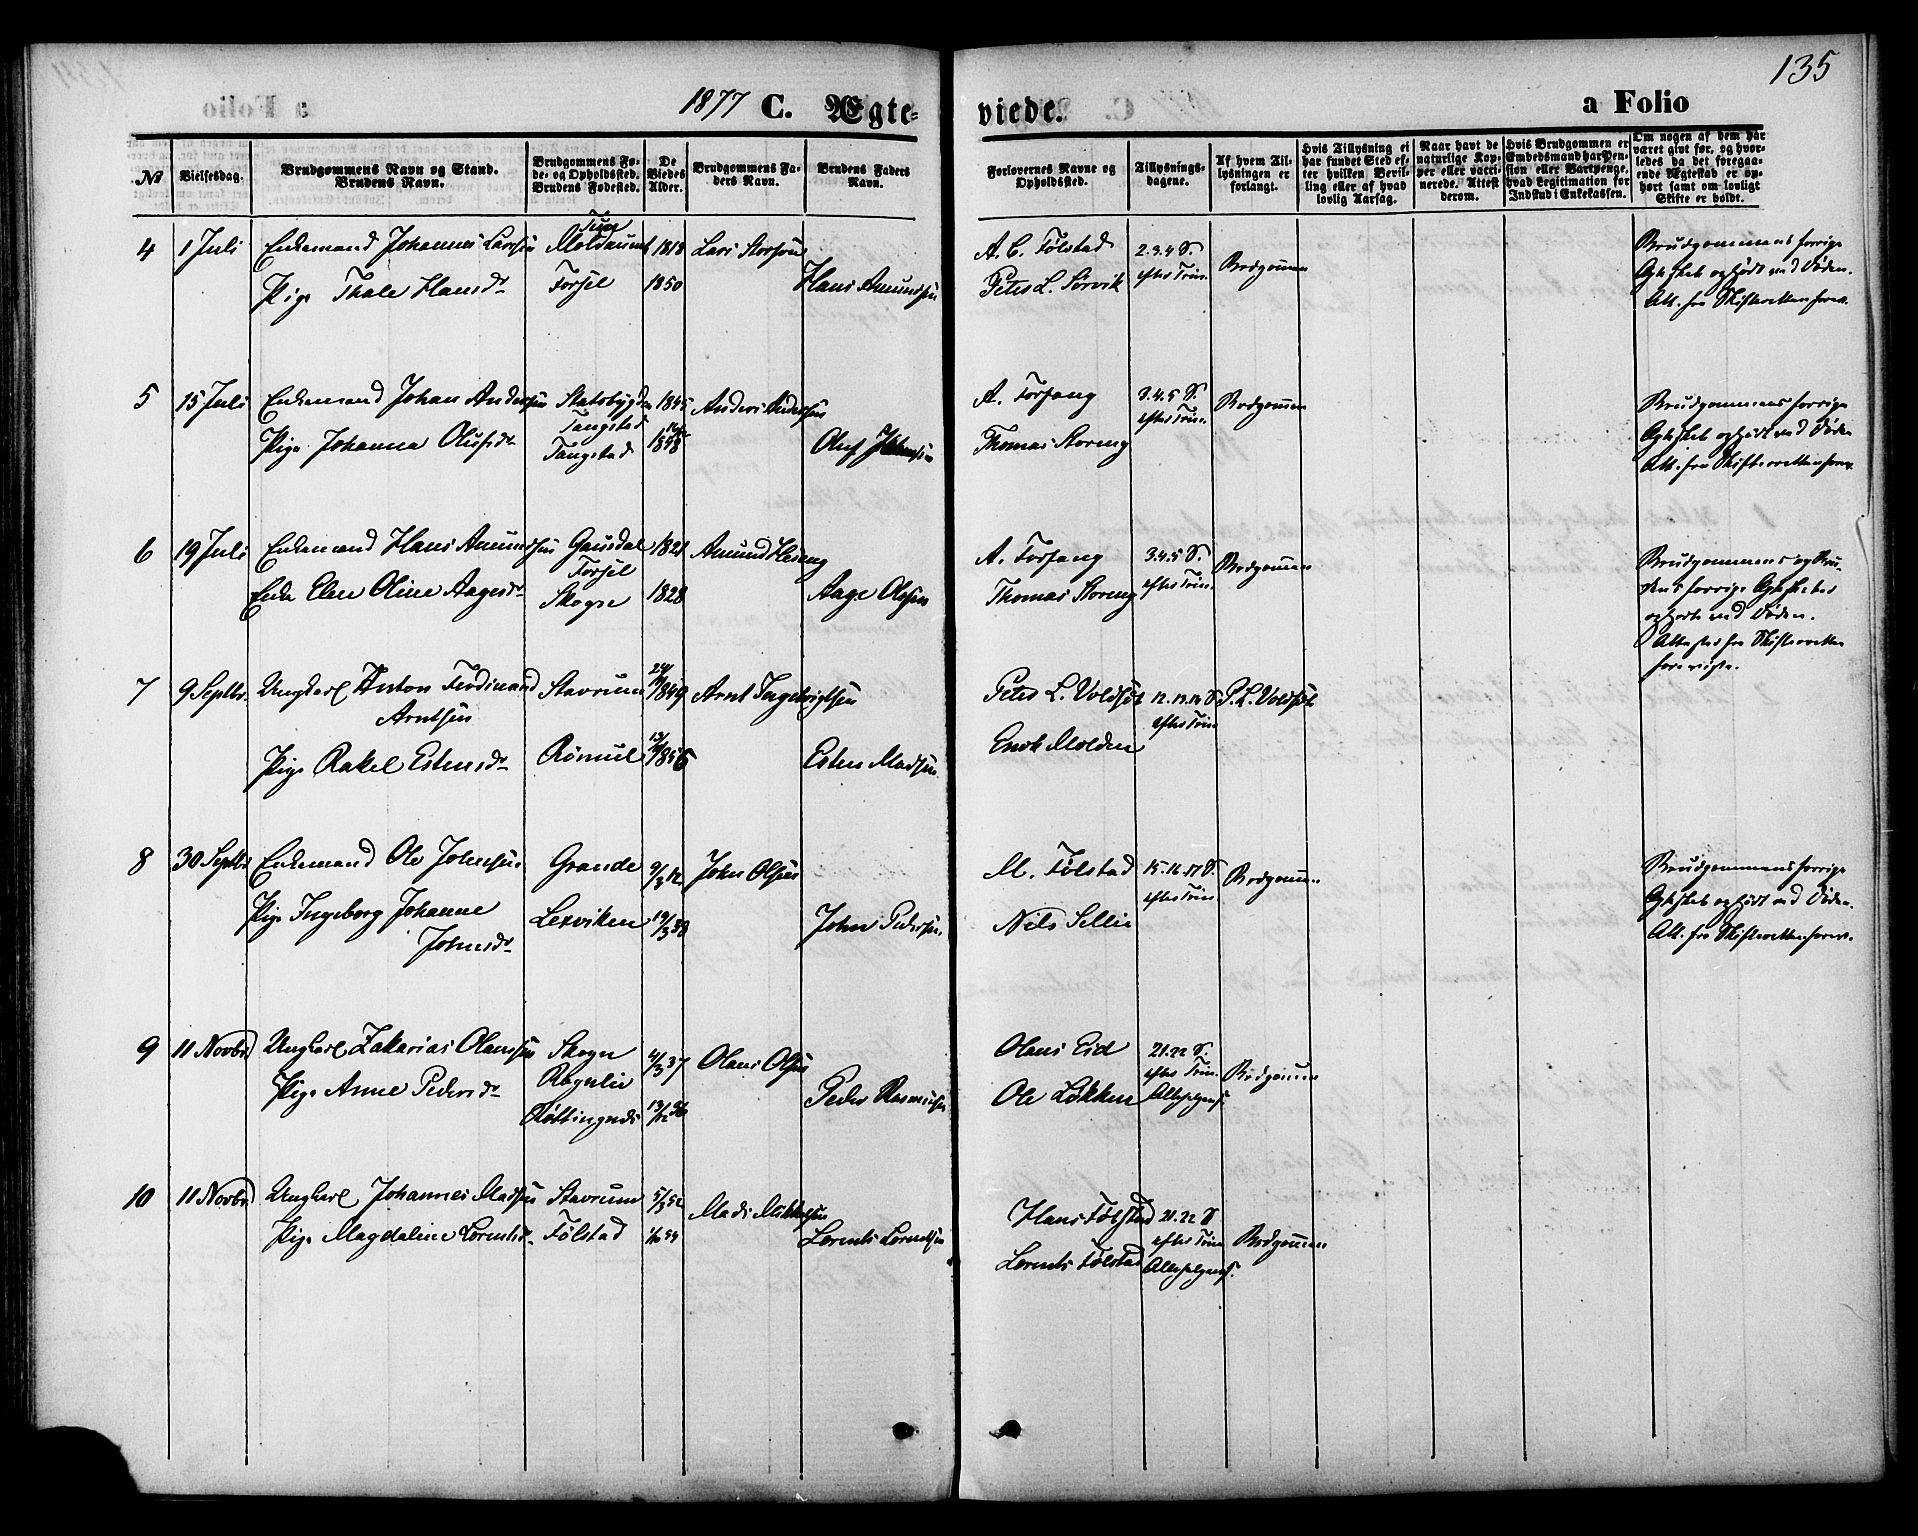 135
1877 C. Ægte-
viede.
a Folio
№
Vielsesdag.
Brudgommens Navn og Stand.
Brudens Navn.
Brudgommens Fø-
de- og Opholdssted.
Brudens Fødested.
De
Viedes
Alder.
Brudgommens Fa-
ders Navn.
Brudens Faders
Navn.
Forlovernes Navne og
Opholdssted.
Tillysnings-
dagene.
Af hvem Til-
lysningen er
forlangt.
Hvis Tillysning ei
har fundet Sted ef-
ter hvilken Bevil-
ling eller af hvad
lovlig Aarsag.
Naar havt de
naturlige Kop-
per eller vacci-
nerede. Attest
derom.
Hvis Brudgommen er
Embedsmand har Pen-
sion eller Vartpenge,
hvad Legitimation for
Indskud i Enkekassen.
Om nogen af dem har
været givt før, og hvor-
ledes da det foregaa-
ende Ægteskab er op-
hørt samt om lovligt
Skifte er holdt.
4 1 Juli Enkemand Johannes Larsen 1818 Lars Storsen
Pige Thale Hansdr Forsel 1850 Hans Amundsen
A. C. Følstad 2.3.4 S.
Peter L. Sørvik efter Trin. Brdgommen
Brudgommens forrige
Ægteskab ophørt ved Døden.
Att. fra Skifteretten forev.
5 15 Juli Enkemand Johan Andersen Statsbygden 1845 Anders Andersen
Tangstad
Pige Johanna Olufsdr Tangstad Oluf Johnsen
A. Forfang 3.4.5 S.
Thomas Storeng efter Trin. Brdgommen
Brudgommens forrige
Ægteskab ophørt ved Døden
Att. fra Skifteretten forev.
6 19 Juli Enkemand Hans Amundsen Gausdal 1821 Amund Heseng
Forsel
Enke Elen Oline Aagesdr Skogse 1828 Aage Olsen
A. Forfang 3.4.5 S.
Thomas Storeng efter Trin. Brdgommen
Brudgommens og Bru-
dens forrige Ægteskaber
ophørt ved Døden.
Attester fra Skifteretten
foreviste.
7 9 Septbr. Ungkarl Anton Ferdinand Stavrum 1849 Arnt Ingebrigtsen
Arntsen
Pige Rakel Estensdr Römul 1856 Esten Madsen
Peter L. Voldsæt 12.13.14 S. P. L. Voldsæt
efter Trin
Enok Molden
8 30 Septbr Enkemand Ole Johnsen Grande 9/3 12 John Olsen
Pige Ingeborg Johanne Lexviken 19/3 38 John Pedersen
Johnsdr
M. Følstad 15.16.17 S.
efter Trin. Brdgommen
Nils Sellie
Brudgommens forrige
Ægteskab ophørt ved Døden.
Att. fra Skifteretten forev.
9 11 Novbr Ungkarl Zakarias Olausen Skogn 4/3 37 Olaus Olsen
Pige Anne Pedersdr 13/12 Peder Rasmussen
Olaus Eid 21.22 S.
efter Trin. Brdgommen
Ole Løkken Allehelgensf.
10 11 Novbr Ungkarl Johannes Madsen Stavrum 5/3 52 Mads Mikkelsen
Pige Magdaline Lorentsdr Følstad Lorents Lorentsen
Hans Følstad 21.22 S
efter Trin Brdgommen
Lorents Følstad Allehelgensf.